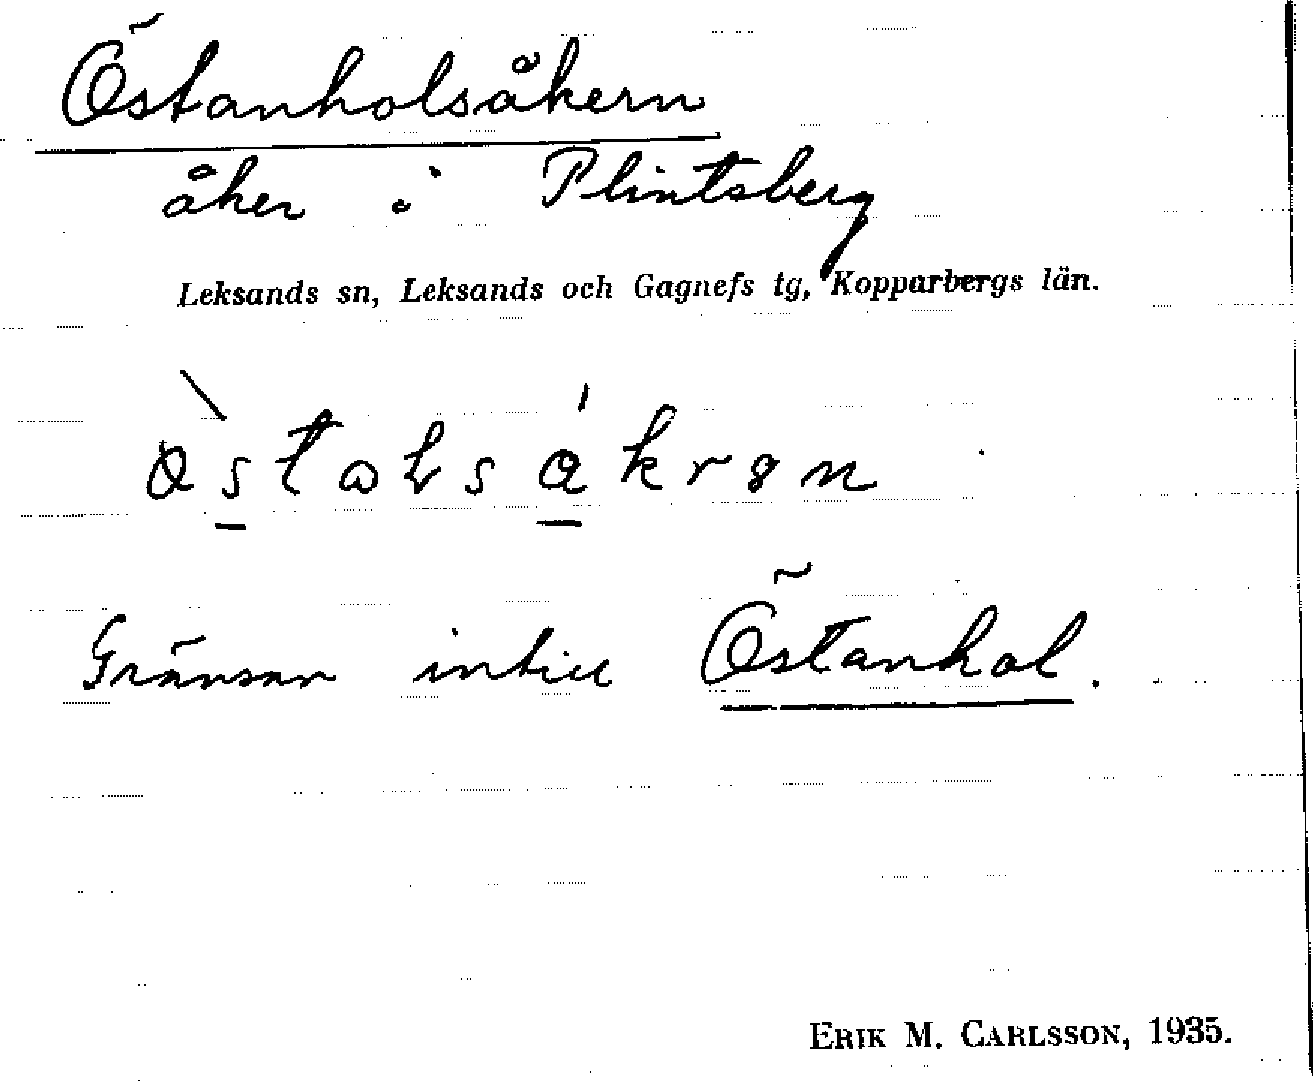 Östanholsåkern
åker i Plintsberg
Leksands sn, Leksands och Gagnefs tg, Kopparbergs län.
Gränsar intill Östanhol.
ERIK M. CARLSSON, 1935.